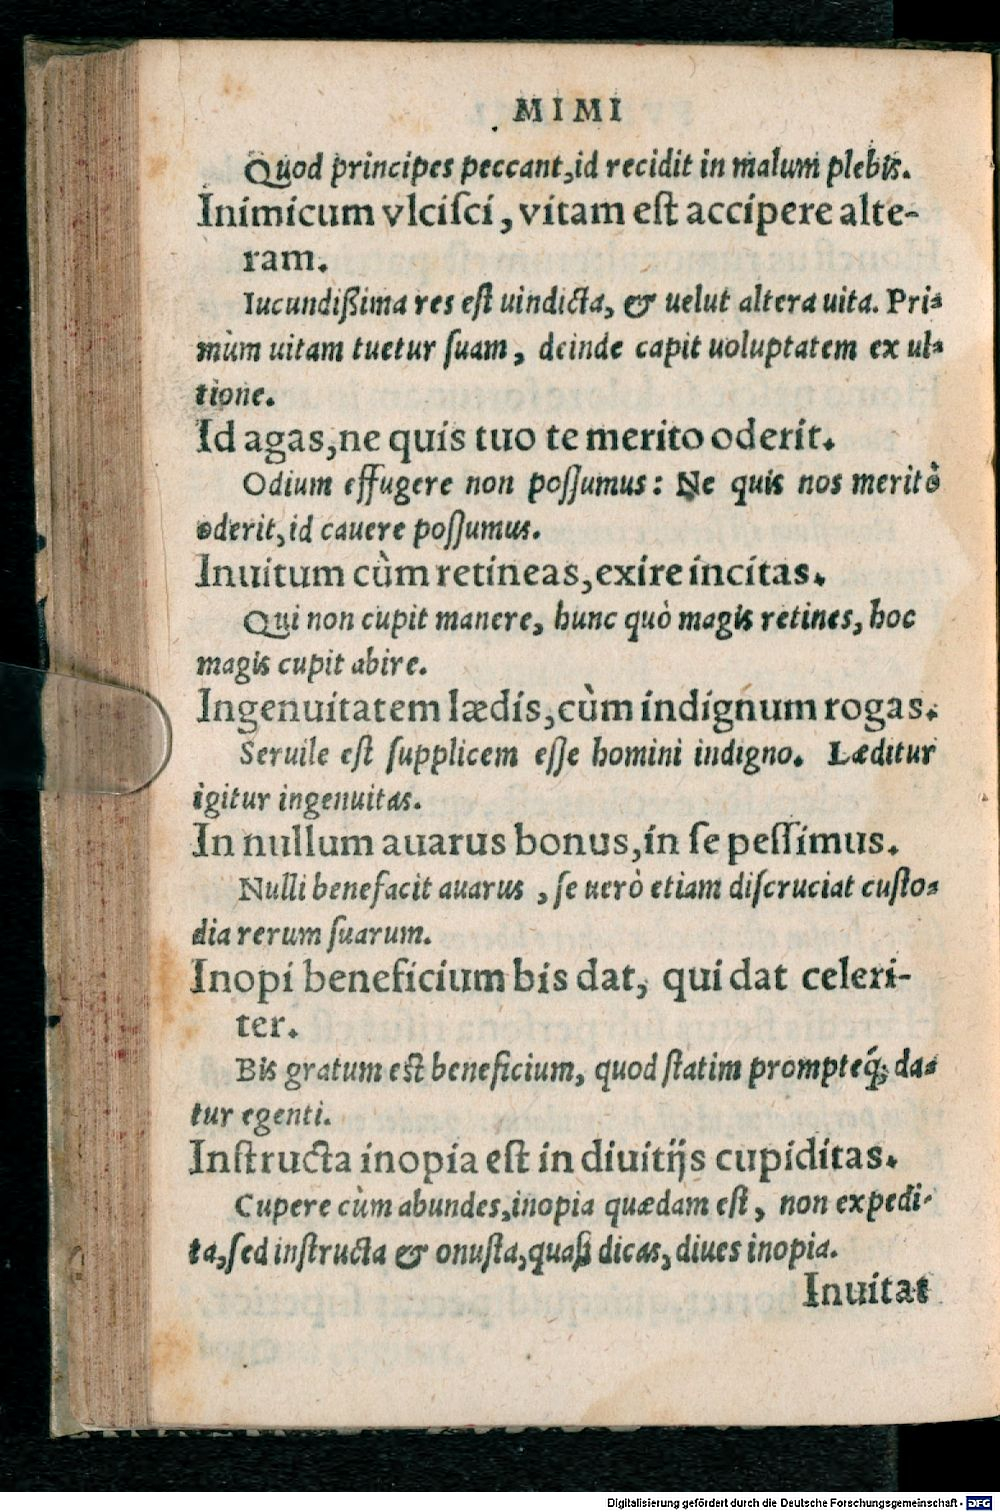 MIMI
Quod principes peccant, id recidit in malum plebis.
Inimicum vlciſci, vitam eſt accipere alte-
ram.
Iucundißima res eſt uindicta, & uelut altera uita. Pri-
mùm uitam tuetur ſuam, deinde capit uoluptatem ex ul-
tione.
Id agas, ne quis tuo te merito oderit.
Odium effugere non poſſumus: Ne quis nos meritò
oderit, id cauere poſſumus.
Inuitum cùm retineas, exire incitas.
Qui non cupit manere, hunc quò magis retines, hoc
magis cupit abire.
Ingenuitatem lædis, cùm indignum rogas.
Seruile eſt ſupplicem eſſe homini indigno. Læditur
igitur ingenuitas.
In nullum auarus bonus, in ſe peſſimus.
Nulli benefacit auarus, ſe uerò etiam diſcruciat cuſto-
dia rerum ſuarum.
Inopi beneficium bis dat, qui dat celeri-
ter.
Bis gratum eſt beneficium, quod ſtatim prompteq́; da-
tur egenti.
Inſtructa inopia eſt in diuitijs cupiditas.
Cupere cùm abundes, inopia quædam eſt, non expedi-
ta, ſed inſtructa & onuſta, quaſi dicas, diues inopia.
Inuitat
Digitalisierung gefördert durch die Deutsche Forschungsgemeinschaft - DFG